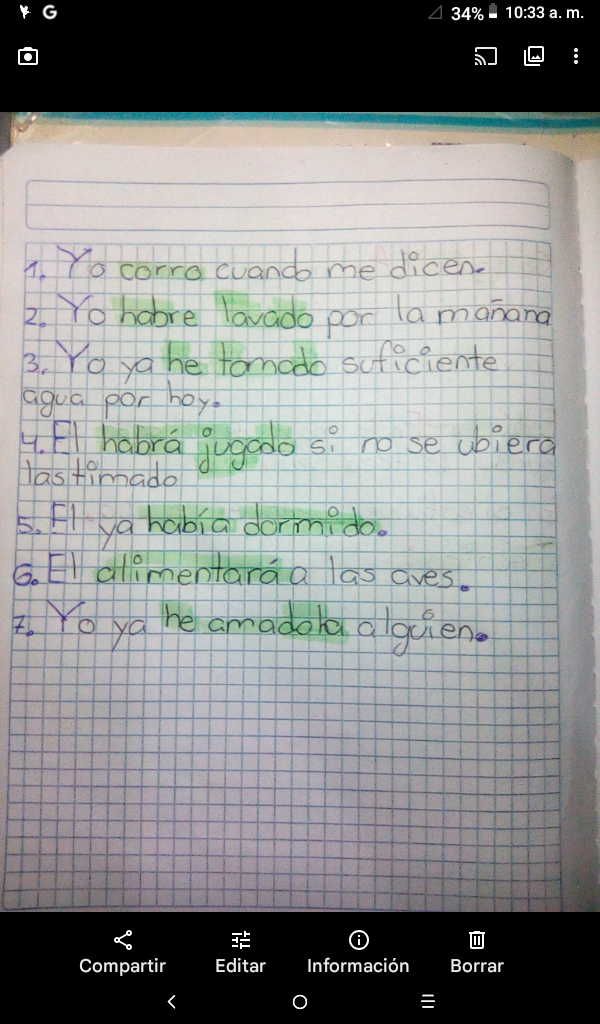 34% 10:33 a. m.
1. Yo corro cuando me dicen.
2. Yo habre lavado por la mañana
3. Yo ya he tomado suficiente
agua por hoy.
4. El habrá jugado si no se ubiera
lastimado
5. El ya había dormido.
6. El alimentará a las aves.
7. Yo ya he amado a alguien.
Compartir Editar Información Borrar